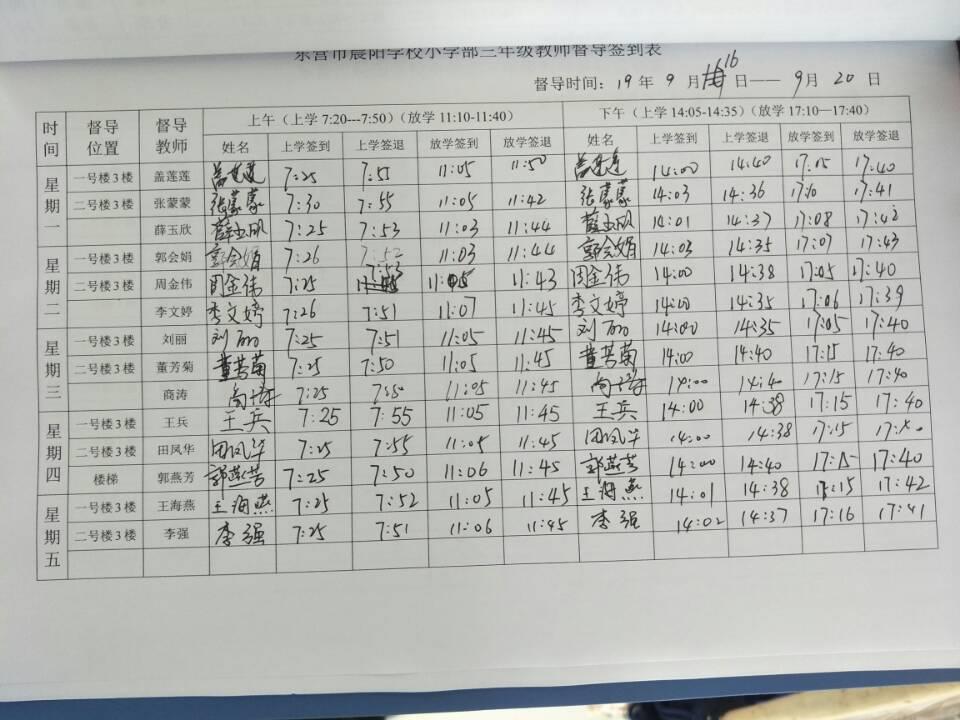 东营市晨阳学校小学部三年级教师督导签到表
督导时间：19年9月16日——9月20日
时间 督导位置 督导教师 上午（上学7:20---7:50）（放学11:10-11:40） 下午（上学14:05-14:35）（放学17:10—17:40）
姓名 上学签到 上学签退 放学签到 放学签退 姓名 上学签到 上学签退 放学签到 放学签退
星期一 一号楼3楼 盖莲莲 盖莲莲 7:25 7:51 11:05 11:50 盖莲莲 14:00 14:40 17:15 17:40
二号楼3楼 张蒙蒙 张蒙蒙 7:30 7:55 11:05 11:42 张蒙蒙 14:03 14:36 17:41
薛玉欣 薛玉欣 7:25 7:53 11:03 11:44 薛玉欣 14:01 14:37 17:08 17:42
星期二 一号楼3楼 郭会娟 郭会娟 7:26 7:52 11:03 11:44 郭会娟 14:03 14:35 17:07 17:43
二号楼3楼 周金伟 周金伟 7:25 7:53 11:05 11:43 周金伟 14:00 14:38 17:05 17:40
李文婷 李文婷 7:26 7:51 11:07 11:45 李文婷 14:00 14:35 17:06 17:39
星期三 一号楼3楼 刘丽 刘丽 7:25 7:51 11:05 11:45 刘丽 14:00 14:35 17:05 17:40
二号楼3楼 董芳菊 董芳菊 7:25 7:50 11:05 11:45 董芳菊 14:00 14:40 17:15 17:40
商涛 商涛 7:25 7:50 11:05 11:45 商涛 14:00 14:40 17:15 17:40
星期四 一号楼3楼 王兵 王兵 7:25 7:55 11:05 11:45 王兵 14:00 14:38 17:15 17:40
二号楼3楼 田凤华 田凤华 7:25 7:55 11:05 11:45 田凤华 14:00 14:38 17:15
楼梯 郭燕芳 郭燕芳 7:25 7:50 11:06 11:45 郭燕芳 14:00 14:40 17:15 17:40
星期五 一号楼3楼 王海燕 王海燕 7:25 7:52 11:05 11:45 王海燕 14:01 14:38 17:15 17:42
二号楼3楼 李强 李强 7:25 7:51 11:06 11:45 李强 14:02 14:37 17:16 17:41